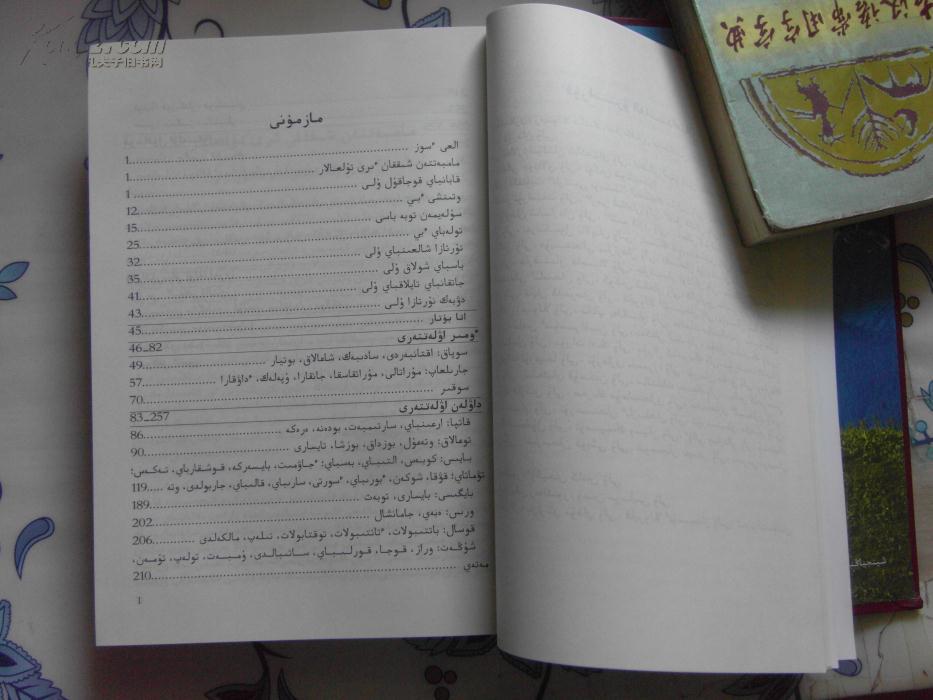 مازمۇنى
العى ٴسوز ........ 1
مامبەتتەن شىققان ٴىرى تۇلعالار ........ 1
قابانباي قوجاقۇل ۇلى ........ 1
وتىنشى ٴبي ........ 12
سۇلەيمەن توبە باسى ........ 15
تولەباي ٴبي ........ 25
نۇرتازا شالعىنباي ۇلى ........ 32
باسباي شولاق ۇلى ........ 35
جاتقانباي تايلاقباي ۇلى ........ 41
دۋبەك نۇرتازا ۇلى ........ 43
انا بۇتار ........ 45
ٴومىر اۋلەتتەرى 46_82
سوپاق: اقتانبەردى، سادىبەك، شامالاق، بوتپار ........ 49
جارىلعاپ: مۇراتالى، مۇراتقاسقا، جانقارا، ۇپەلەك، ٴداۋقارا ........ 57
سوقىر ........ 70
داۋلەن اۋلەتتەرى 83_257
فاتپا: ارعىنباي، سارتىمبەت، بودەنە، ەرەكە ........ 86
تومالاق: وتەمۇل، بوزداق، بوزشا، تايسارى ........ 90
بايىس: كوبەس، التىباي، بەسباي؛ ٴجاۋمىت، بايسەركە، قوشقارباي، تەكەس؛
تۇماتاي؛ قۇقا، شوكەن، ٴبورىباي، ٴسورتى، سارىباي، قالىباي، جاربولدى، وتە ..... 119
بايگىسى: بايسارى، توبەت ........ 189
ورىس: ەبەي، جامانشال ........ 202
قوسال: باتتىبولات، ٴتانتىبولات، توقتابولات، تىلەپ، مالكەلدى ........ 206
شۇڭەت: وراز، قوجا، قورلىباي، ساتىبالدى، ۇمبەت، تولەپ، تۇمەن،
مەتەي ........ 210
1
孔夫子旧书网